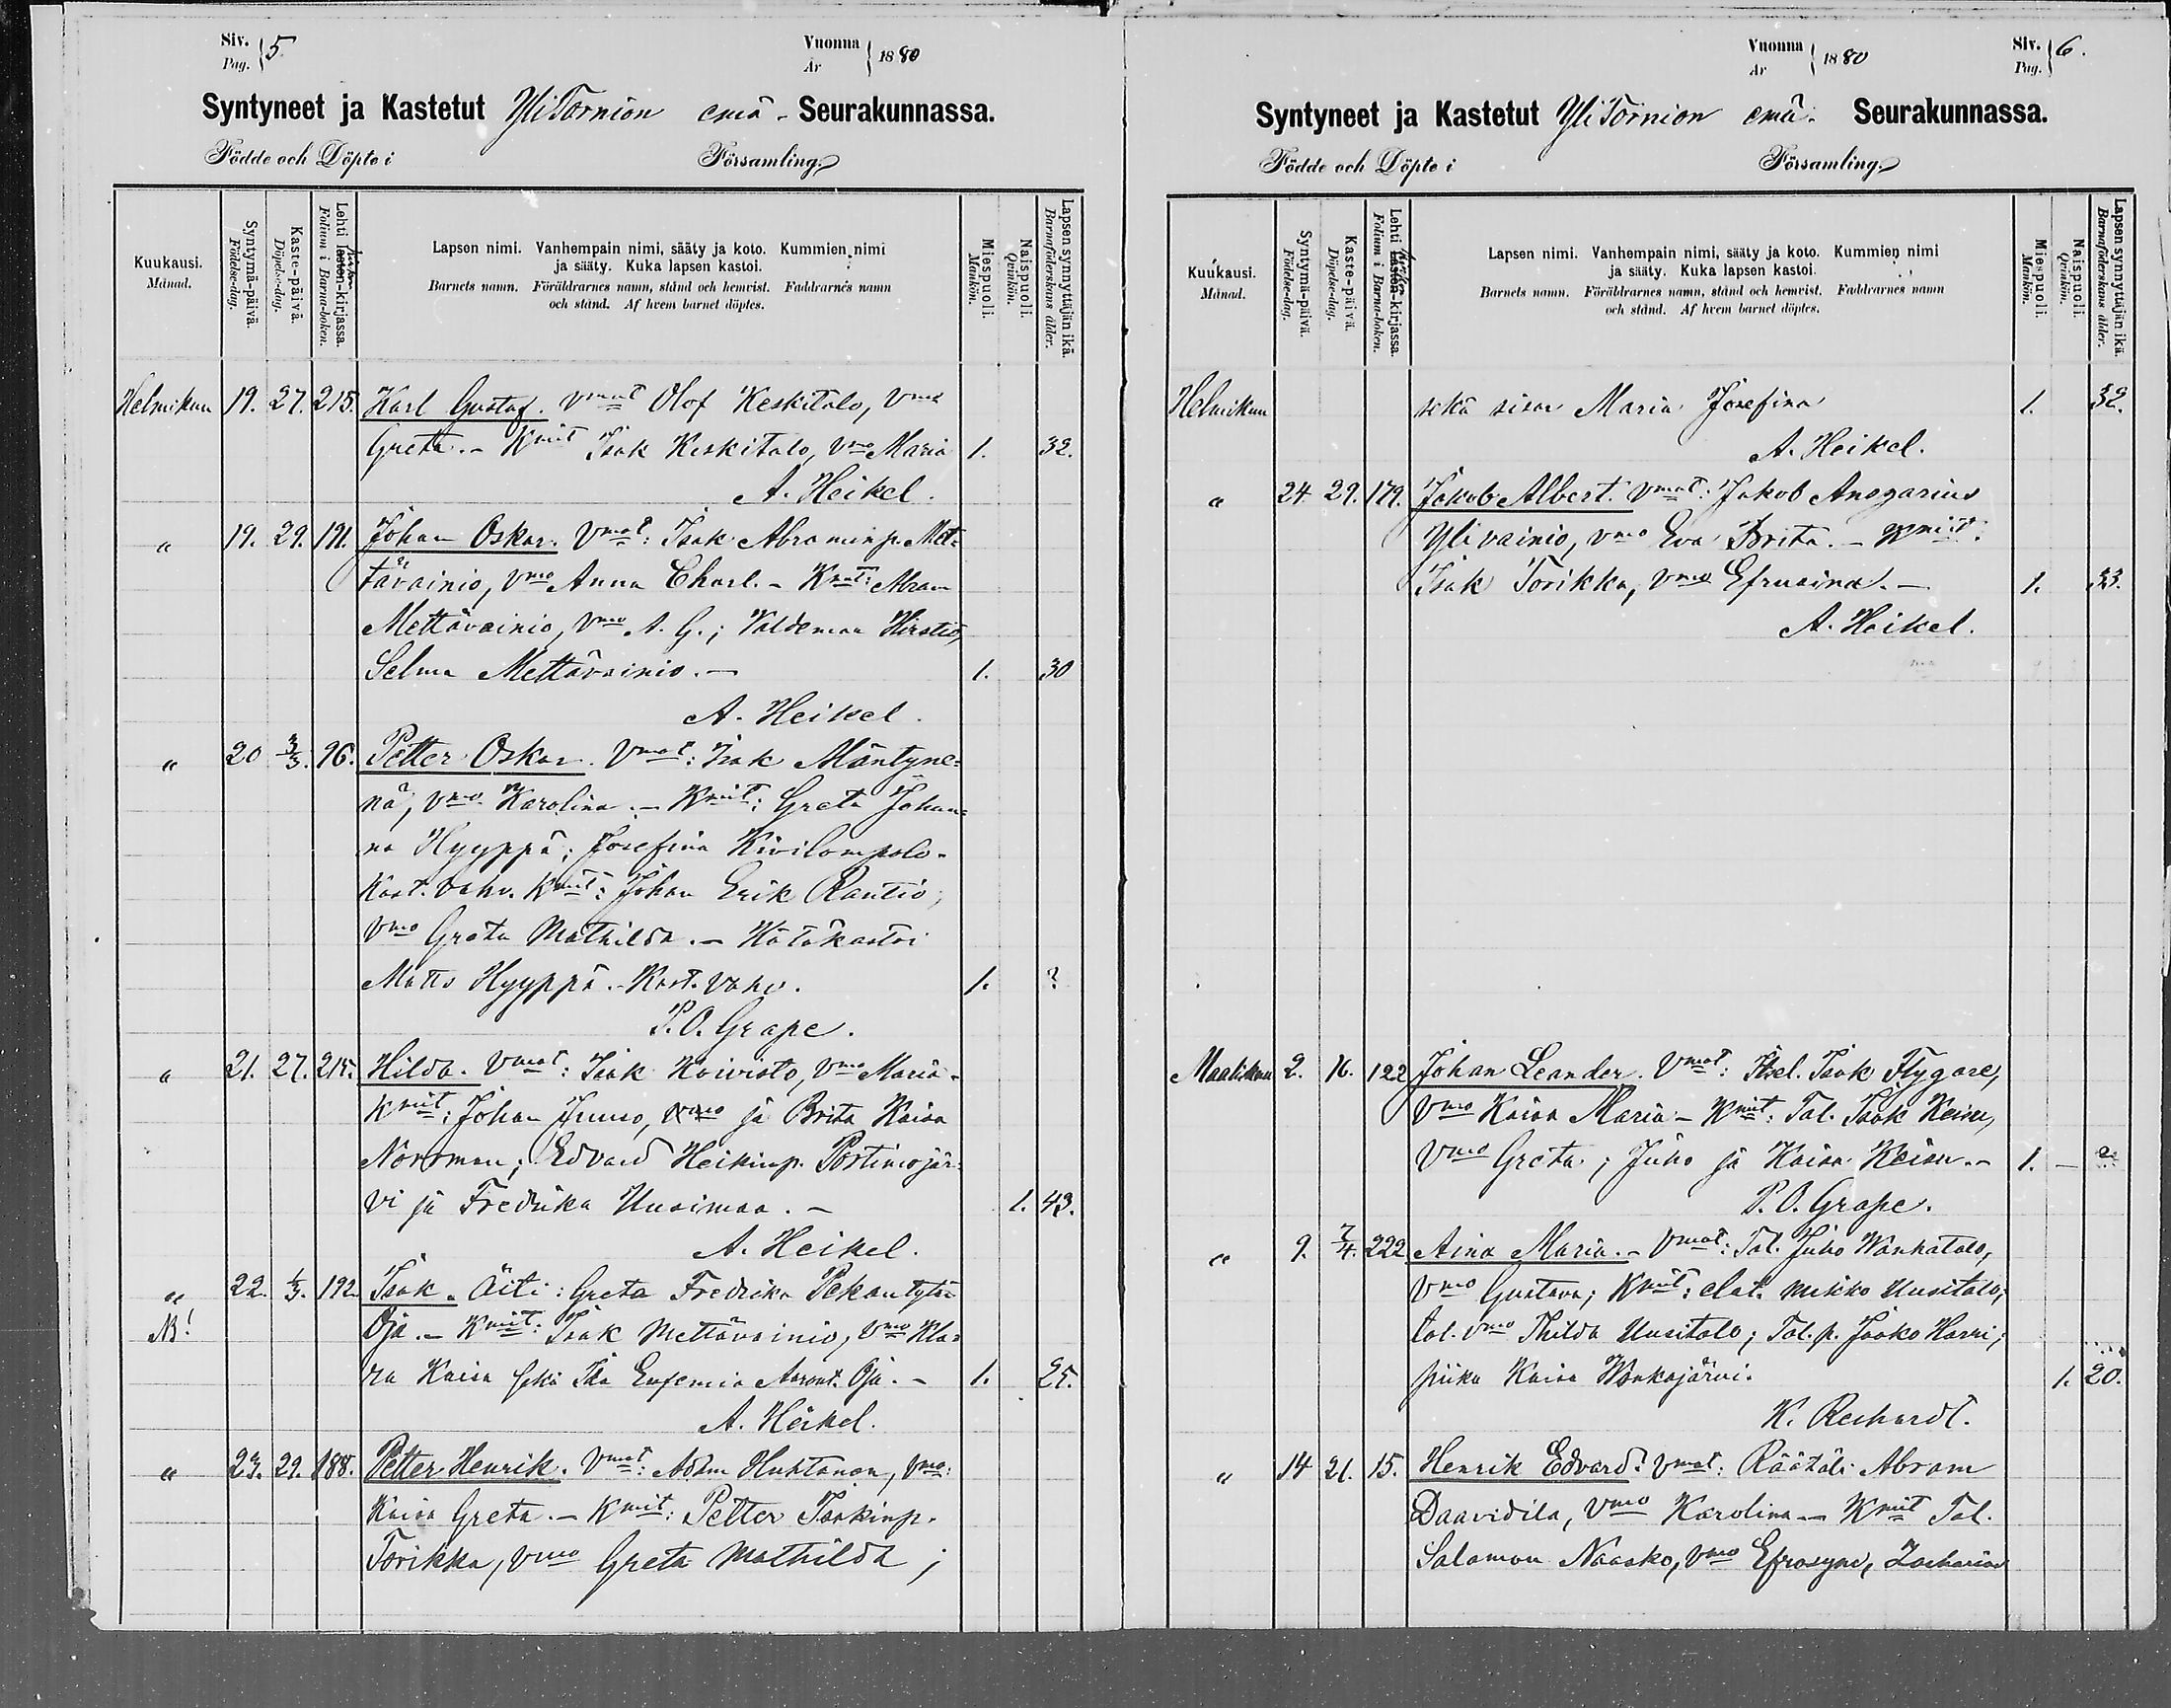 Siv. Pag. 5.
Vuonna År 1880
Syntyneet ja Kastetut YliTornion emä- Seurakunnassa.
Födde och Döpte i Församling.
Kuukausi. Månad.
Syntymä-päivä. Födelse-dag.
Kaste-päivä. Döpelse-dag.
Lehti lasten-kirjassa. Folium i Barna-boken.
Lapsen nimi. Vanhempain nimi, sääty ja koto. Kummien nimi
ja sääty. Kuka lapsen kastoi.
Barnets namn. Föräldrarnes namn, stånd och hemvist. Faddrarnes namn
och stånd. Af hvem barnet döptes.
Miespuoli. Mankön.
Naispuoli. Qvinkön.
Lapsen synnyttäjän ikä. Barnaföderskans ålder.
Helmikuu 19. 27. 215. Karl Gustaf. Vmat Olof Keskitalo, Vmo
Greta. - Kmit Isak Keskitalo, Vmo Maria 1. 32.
A. Heikel.
" 19. 29. 191. Johan Oskar. Vmat: Isak Abraminp. Met-
tävainio, Vmo Anna Charl. - Kmit: Abram
Mettävainio, Vmo A. G.; Valdemar Hirstiö,
Selma Mettävainio. - 1. 30
A. Heikel.
" 20 3/3. 96. Petter Oskar. Vmat: Isak Mäntyne-
nä, Vmo Karolina. - Kmit: Greta Johan-
na Hyyppä; Josefina Kivilompolo-
Kast. vahv. Kmit: Johan Erik Rantio,
Vmo Greta Mathilda. - Hätäkastoi
Matts Hyyppä. - Kast. vahv. 1. ?
P. O. Grape.
" 21. 27. 215. Hilda. Vmat: Isak Koivisto, Vmo Maria-
Kmit: Johan Juuso, Vmo ja Brita Kaisa
Norrman; Edvard Heikinp. Portimojär-
vi ja Fredrika Uusimaa. - 1. 43.
A. Heikel.
" 22. 1/3. 192. Isak. Äiti: Greta Fredrika Pekantytär
NB! Oja. - Kmit: Isak Mettävainio, Vmo Kla-
ra Kaisa sekä Ida Eufemia Aaront. Oja. - 1. 25.
A. Heikel.
" 23. 29. 188. Petter Henrik. Vmat: Adam Huhtanen, Vmo:
Kaisa Greta. - Kmit: Petter Isakinp.
Torikka, Vmo Greta Mathilda;
Vuonna År 1880
Siv. Pag. 6.
Syntyneet ja Kastetut YliTornion emä- Seurakunnassa.
Födde och Döpte i Församling.
Kuukausi. Månad.
Syntymä-päivä. Födelse-dag.
Kaste-päivä. Döpelse-dag.
Lehti lasten-kirjassa. Folium i Barna-boken.
Lapsen nimi. Vanhempain nimi, sääty ja koto. Kummien nimi
ja sääty. Kuka lapsen kastoi.
Barnets namn. Föräldrarnes namn, stånd och hemvist. Faddrarnes namn
och stånd. Af hvem barnet döptes.
Miespuoli. Mankön.
Naispuoli. Qvinkön.
Lapsen synnyttäjän ikä. Barnaföderskans ålder.
Helmikuu sekä sisar Maria Josefina 1. 32.
A. Heikel.
" 24. 29. 179. Jakob Albert. Vmat: Jakob Ansgarius
Ylivainio, Vmo Eva Brita. - Kmit:
Isak Torikka, Vmo Efrusina. - 1. 33.
A. Heikel.
Maaliskuu 2. 16. 122 Johan Leander. Vmat: Itsel. Isak Flygare,
Vmo Kaisa Maria - Kmit: Tal. Isak Keisu,
Vmo Greta; Juho ja Kaisa Keisu. - 1. -
P. O. Grape.
" 9. 7/4. 222 Aina Maria. - Vmat: Tal. Juho Wanhatalo,
Vmo Gustava; Kmit: elat. Mikko Uusitalo;
tal. Vmo Thilda Uusitalo; Tal. p. Jaako Harri;
piika Kaisa Wonkajärvi. 1. 20.
K. Rechardt.
" 14 21. 15. Henrik Edvard. Vmat: Räätäli Abram
Daavidila, Vmo Karolina - Kmit Tal.
Salomon Naasko, Vmo Efrosyne, Zacharias